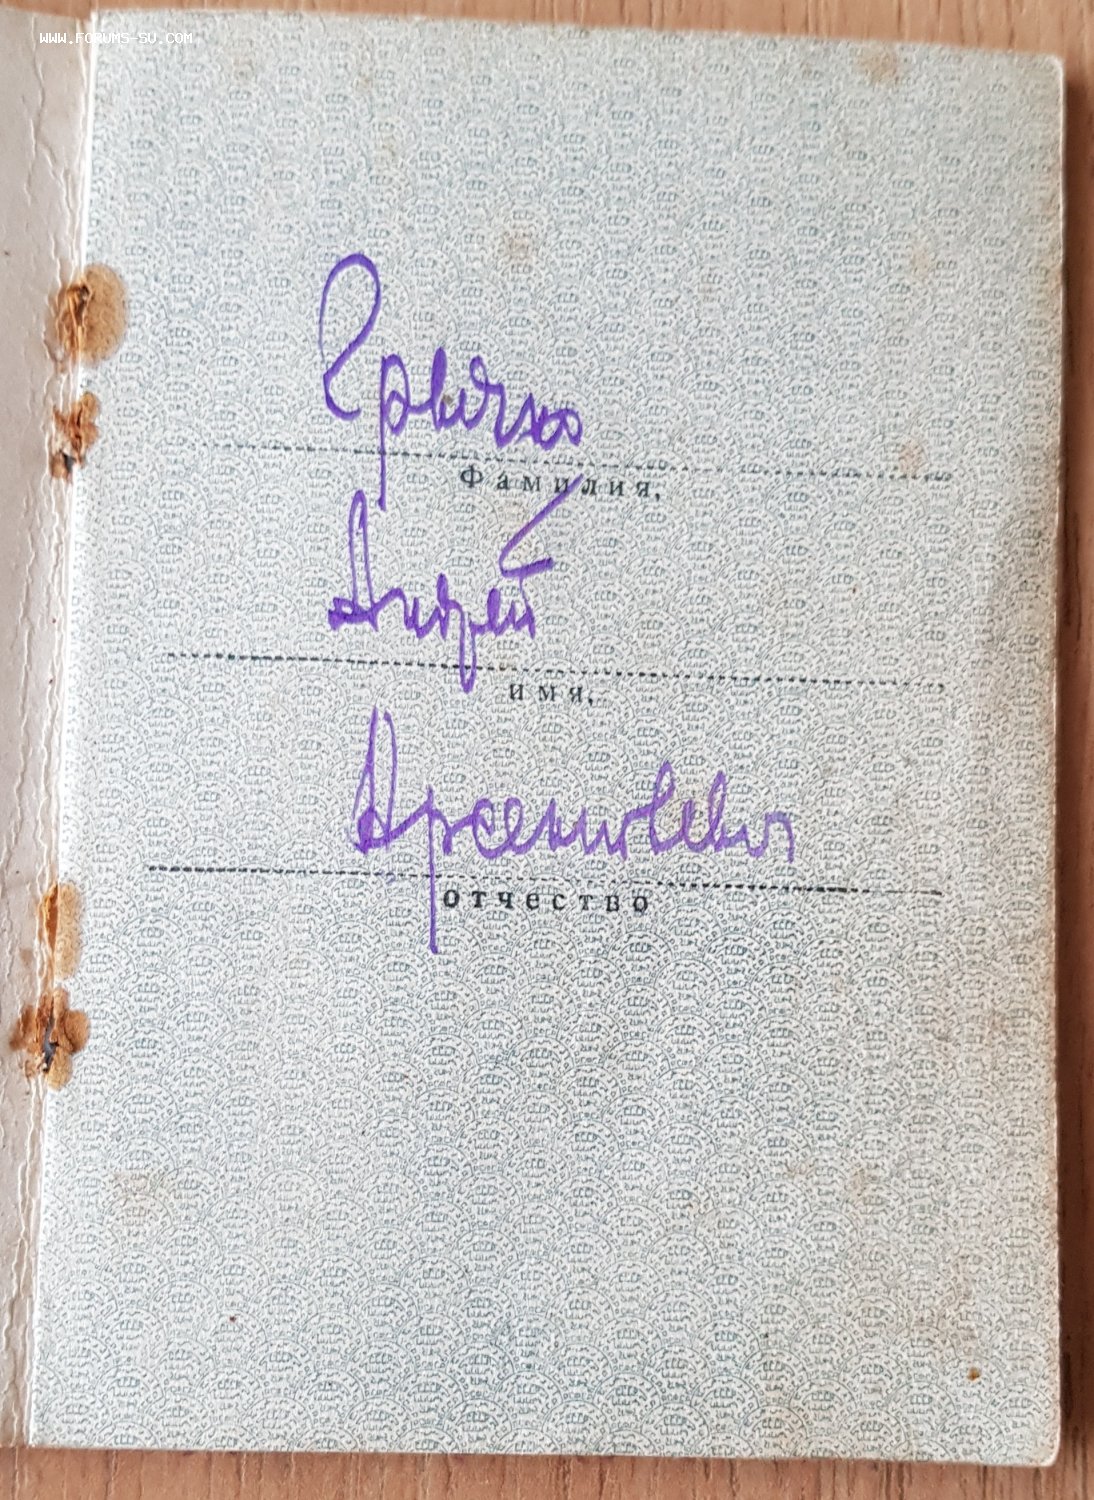 WWW.FORUMS-SU.COM
Фамилия,
Андрей
имя,
Арсентьевич
отчество